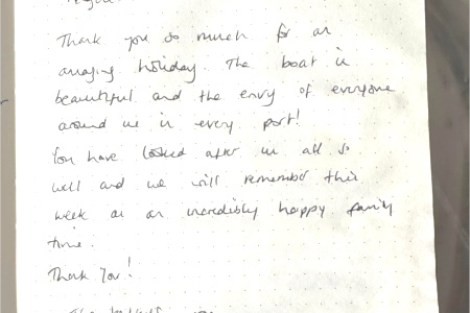 Thank you so much for an
amazing holiday. The boat is
beautiful and the envy of everyone
around us in every port!
You have looked after us all so
well and we will remember this
week as an incredibly happy family
time.
Thank You!
The